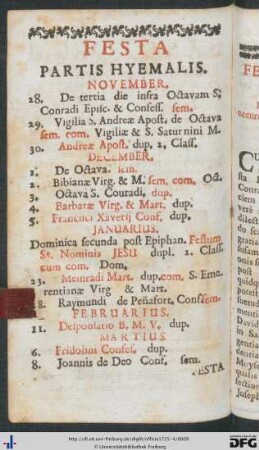 FESTA
PARTIS HYEMALIS.
NOVEMBER.
28. De tertia die infra Octavam S.
Conradi Episc. & Confess. sem.
29. Vigilia S. Andreæ Apost. de Octava
sem. com. Vigiliæ & S. Saturnini M.
30. Andreæ Apost. dup. 2. Class.
DECEMBER.
1. De Octava. sem.
2. Bibianæ Virg. & M. sem. com. Oct.
3. Octava S. Conradi, dup.
4. Barbaræ Virg. & Mart. dup.
5. Francisci Xaverij Conf. dup.
JANUARIUS.
Dominica secunda post Epiphan. Festum
Ss. Nominis JESU dupl. 2. Class.
cum com. Dom,
23. Meinradi Mart. dup. com. S. Eme-
rentianæ Virg & Mart.
Raymundi de Peñafort. Conf. sem.
FEBRUARIUS.
11. Desponsatio B. M. V. dup.
MARTIUS.
6. Fridolini Confes, dup.
8. Joannis de Deo Conf, sem.
FESTA
http://dl.ub.uni-freiburg.de/diglit/officia1725-4/0009
© Universitätsbibliothek Freiburg
DFG